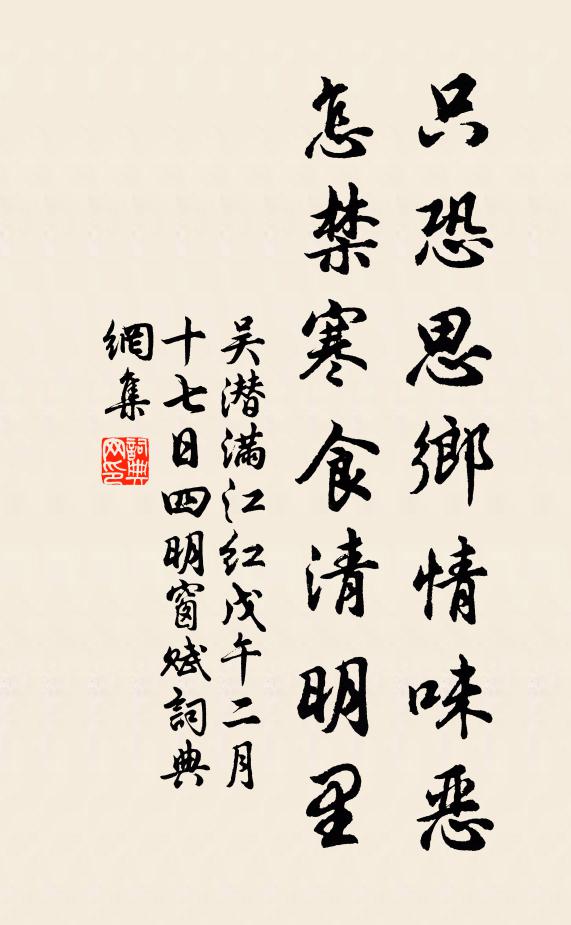 只恐思鄉情味惡
怎禁寒食清明里
吴潜满江红戊午二月
十七日四明窗赋詞典
網集
詞典
网印